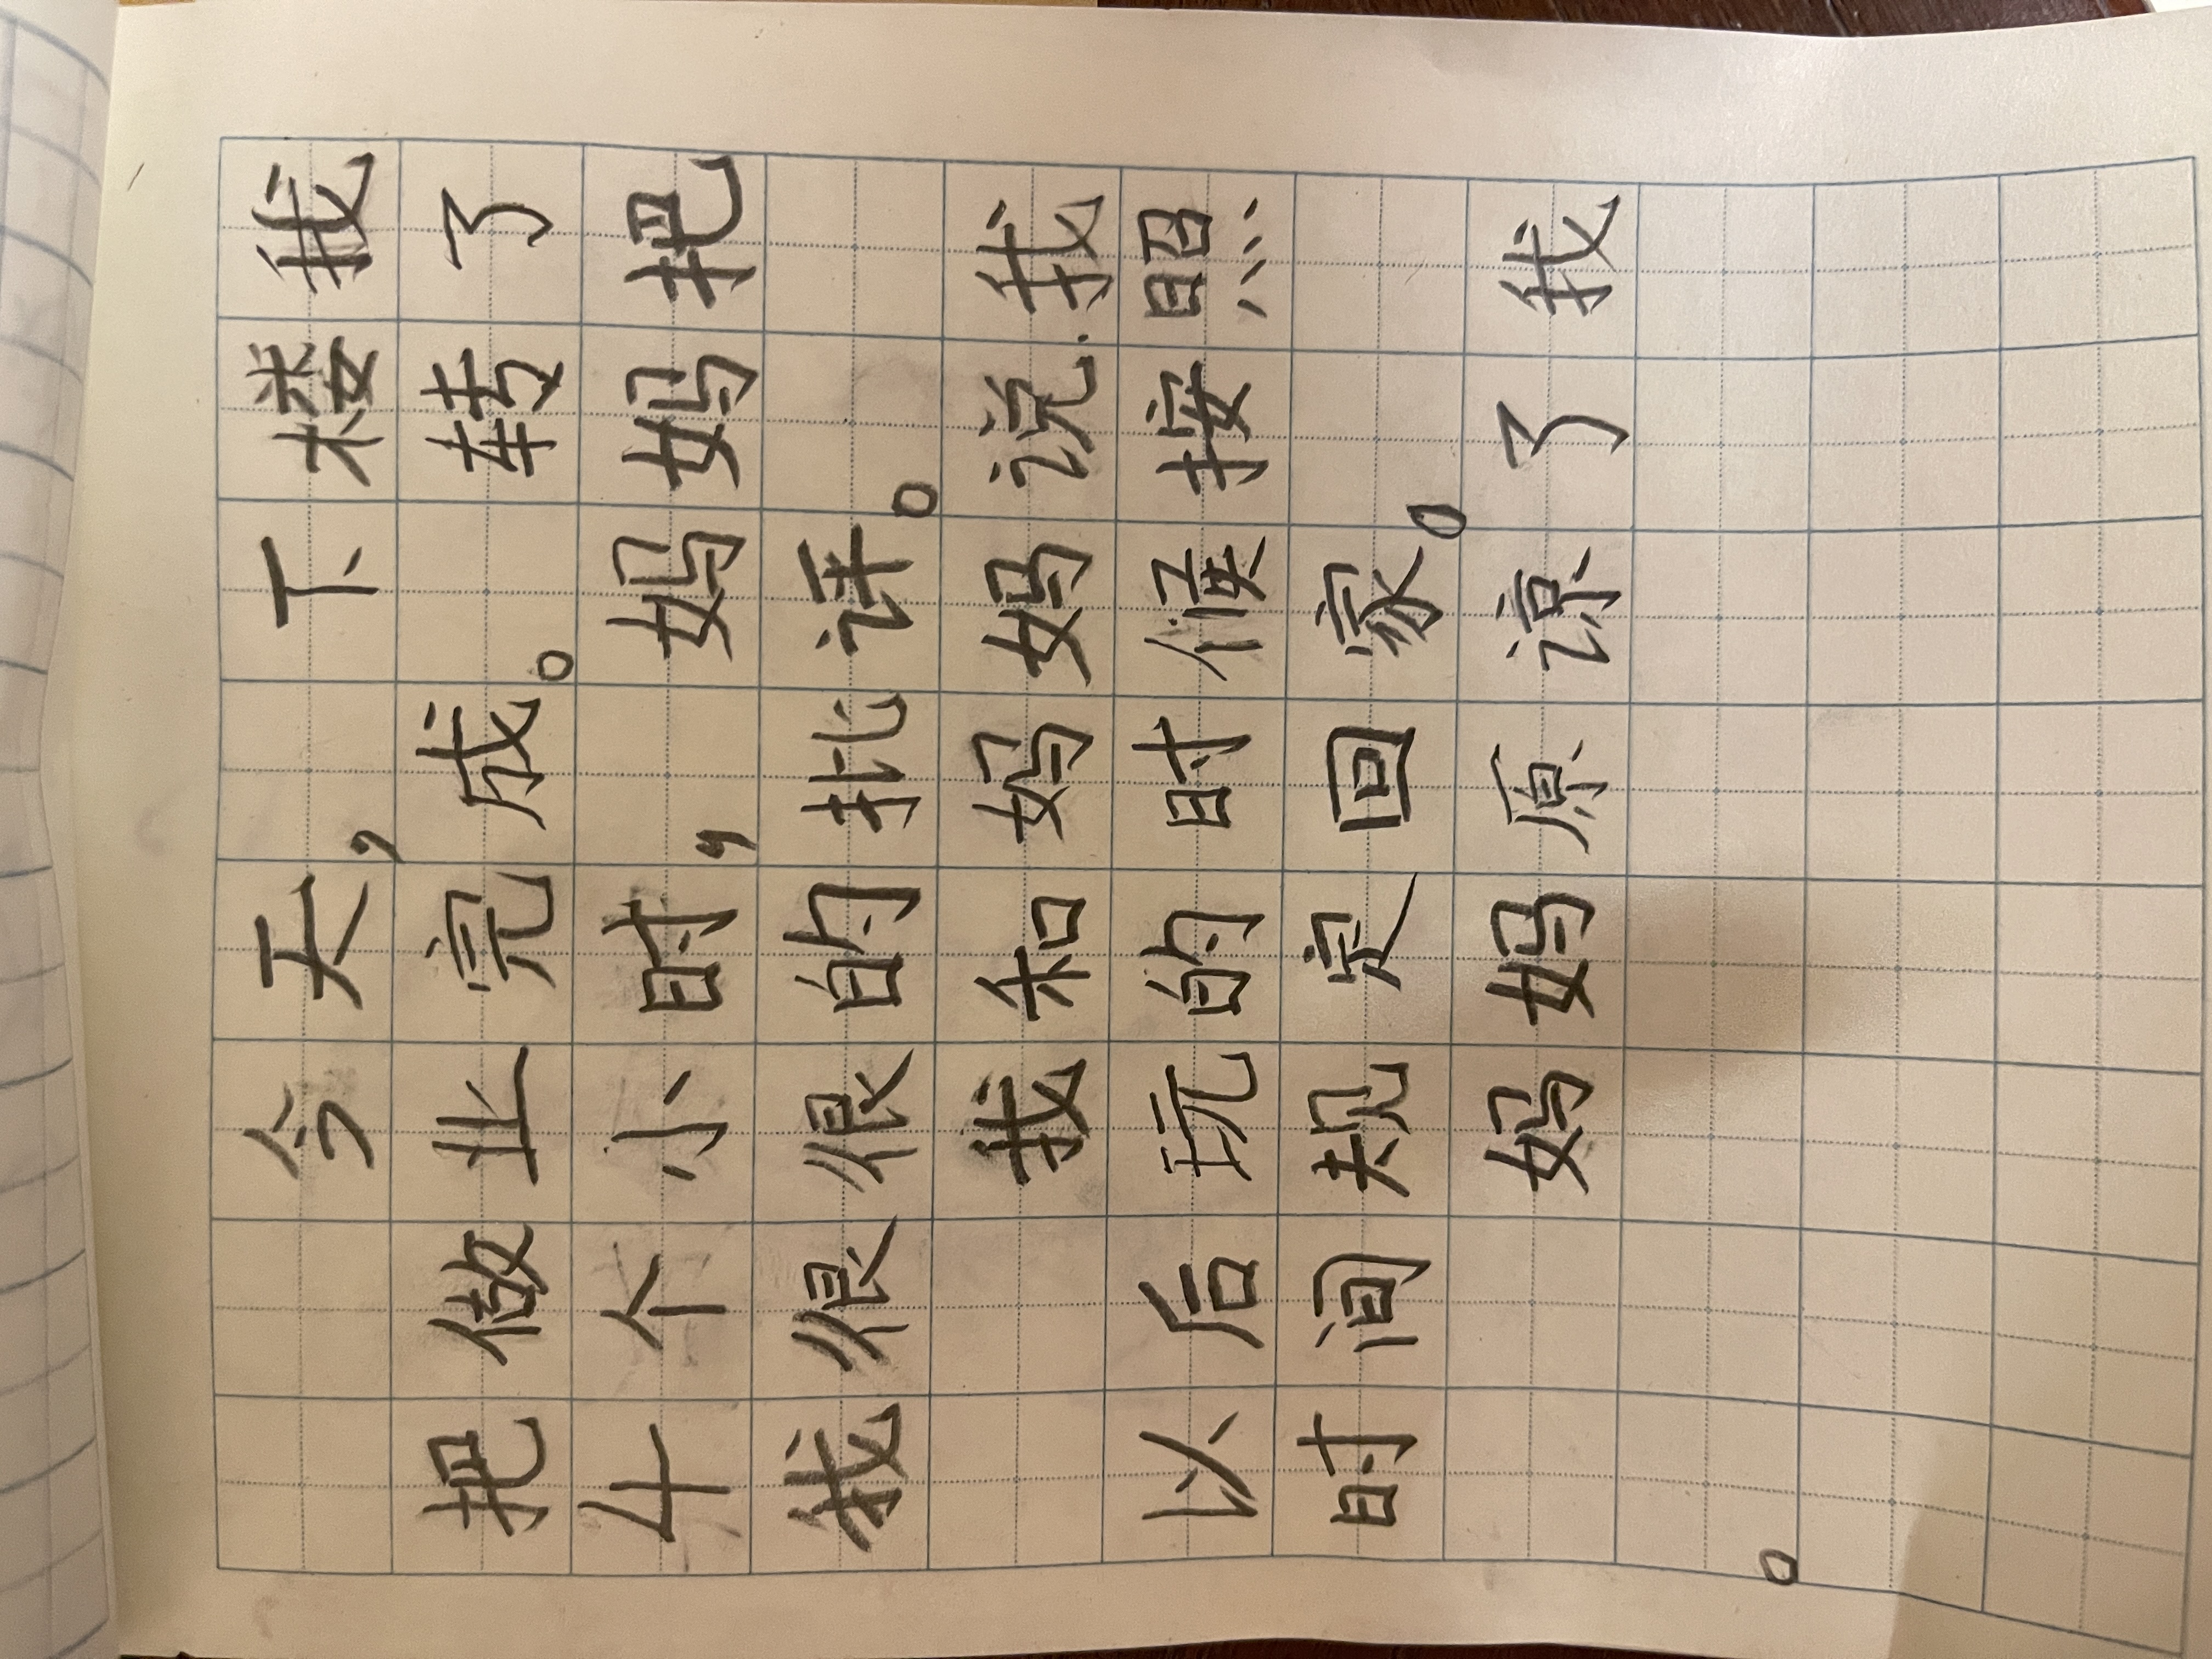 今天，下楼我
把做业完成。转了
4个小时，妈妈把
我很很的批评。
我和妈妈说.我
以后玩的时候按照
时间规定回家。
妈妈原谅了我
。